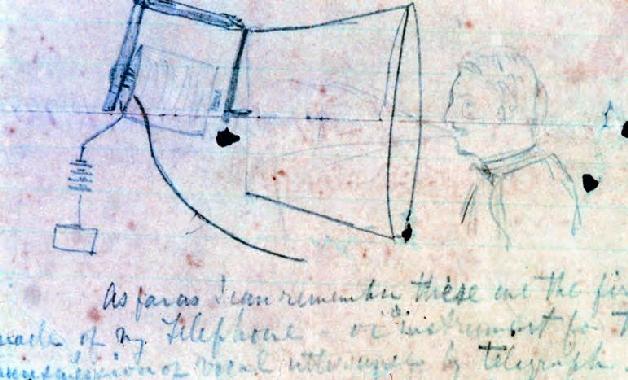 As far as I can remember these are the fir
made of my Telephone - or instrument for T
ansmission of vocal utterances by telegraph.